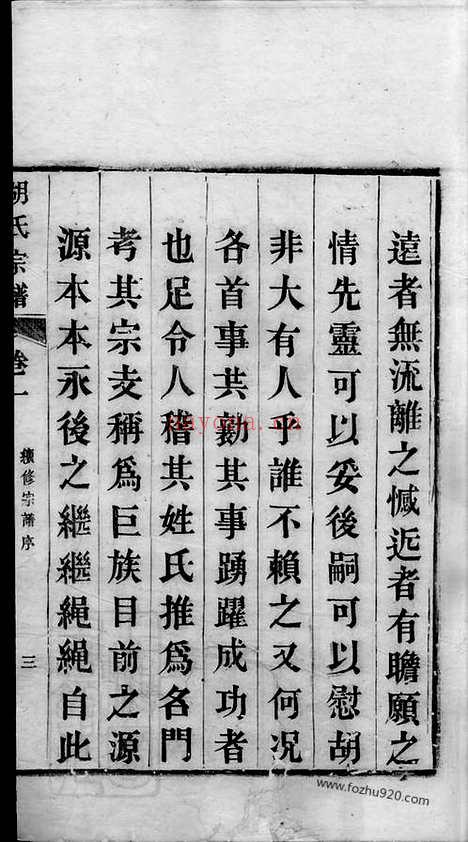 遠者無流離之憾近者有瞻願之
情先靈可以妥後嗣可以慰胡
非大有人乎誰不賴之又何況
各首事共勷其事踴躍成功者
也足令人稽其姓氏推爲名門
考其宗支稱爲巨族目前之源
源本本永後之繼繼繩繩自此
胡氏宗譜
卷一
續修宗譜序
三
nayona.cn
www.fozhu920.com